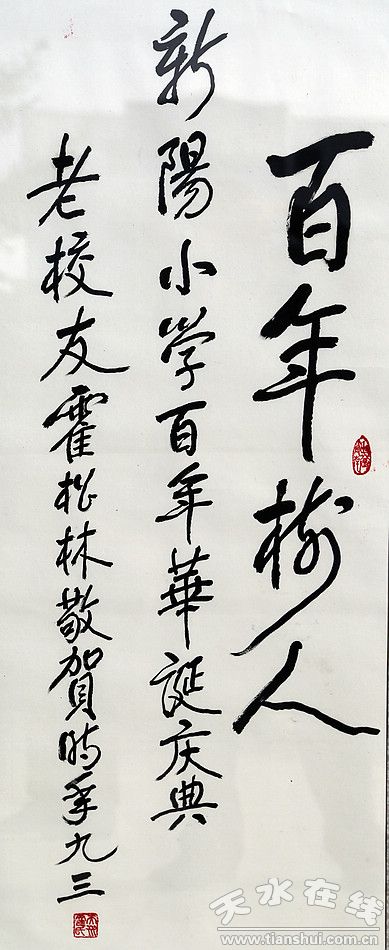 百年树人
新陽小学百年華誕庆典
老校友霍松林敬賀时年九三
天水在线
www.tianshui.com.cn